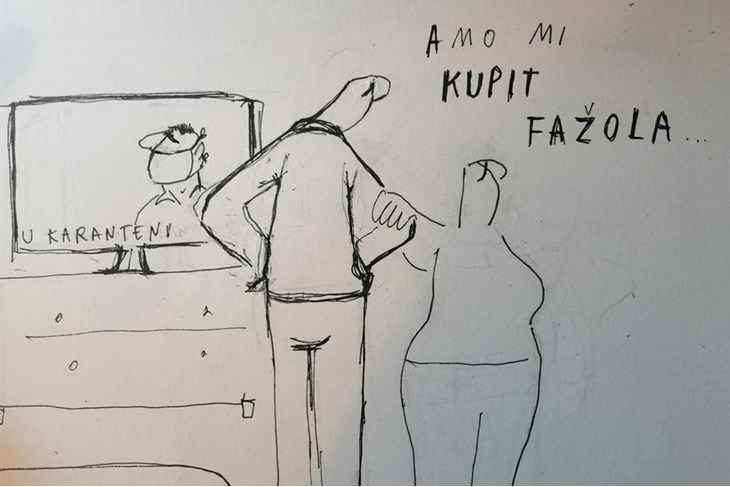 AMO MI
KUPIT
FAŽOLA...
U KARANTENI